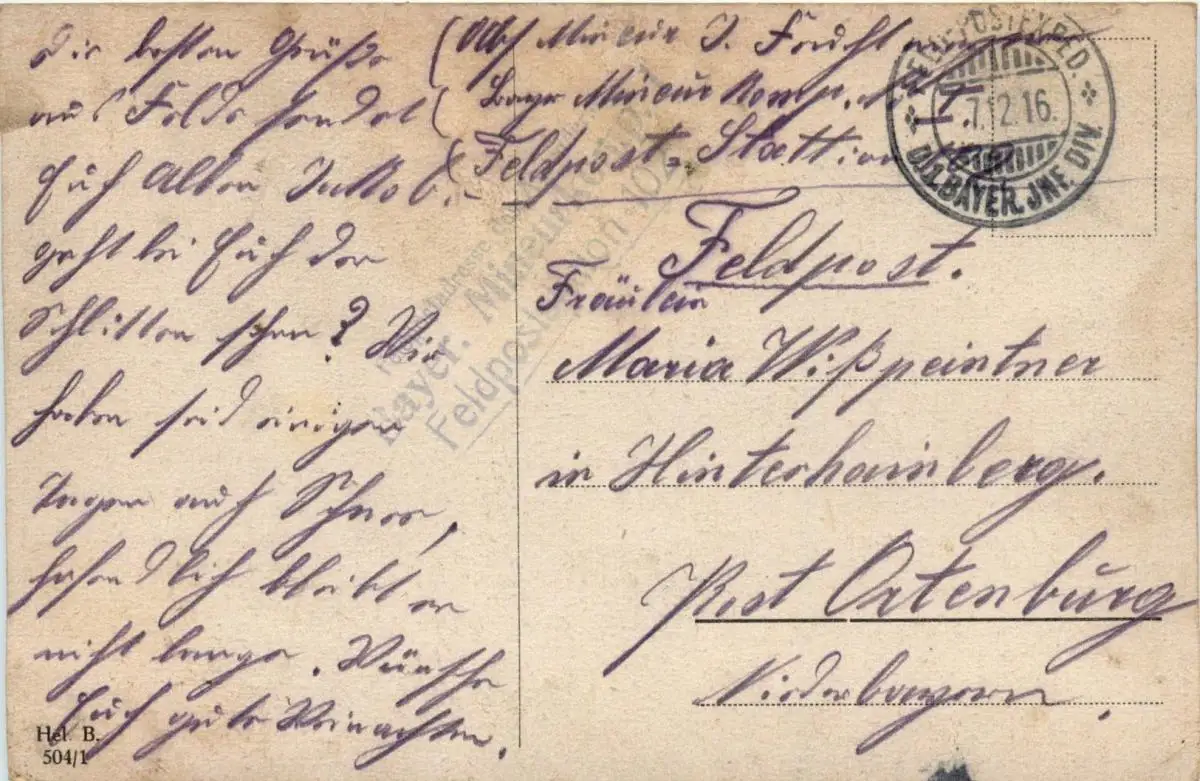 Die besten Grüße
aus Felde sendet
Euch Allen Jakob.
geht bei Euch der
Schlitten schon? Wir
haben seid einigen
Tagen auch Schnee,
hofendlich bleibt er
nicht lange. Wünsche
Euch gute Weinachten.
Abs Mineur J.
Bayr Mineur Komp. No
Feldpost-Stattion
FELDPOSTEXPED.
7.12.16.
D. 11. BAYER. JNF. DIV.
Bayer. Mineurkomp.
Feldpoststation 102
Feldpost.
Fräulein
Maria Wißpeintner
in Hinterhainberg.
Post Ortenburg
Niederbayern.
Hel. B.
504/1